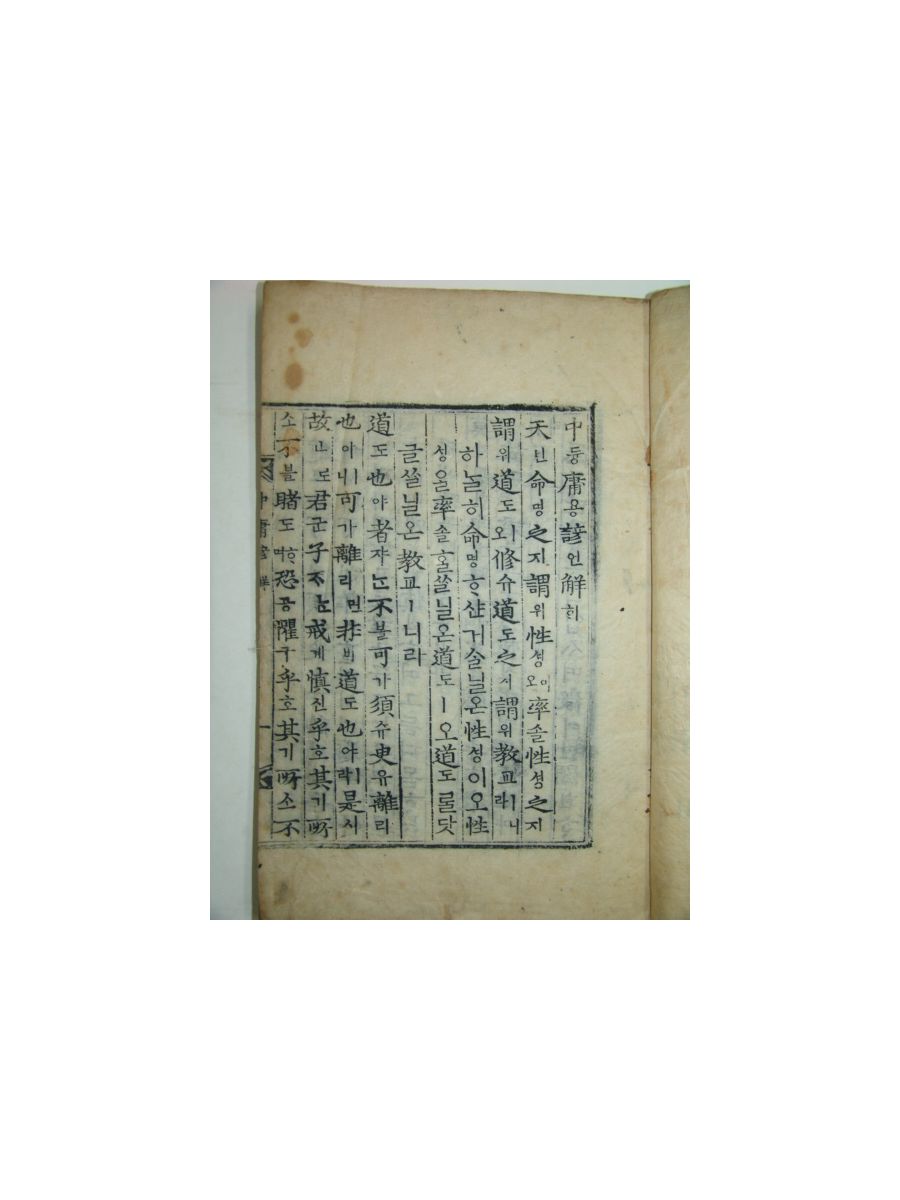 中듕庸용諺언解ᄒᆡ
天텬命명之지謂위性셩이오率솔性셩之지
謂위道도ㅣ오修슈道도之지謂위教교ㅣ니라
하ᄂᆞᆯ히命명ᄒᆞ샨거슬닐온性셩이오性
셩을率솔ᄒᆞᆯᄊᆞᆯ닐온道도ㅣ오道도ᄅᆞᆯ닷
글ᄊᆞᆯ닐온教교ㅣ니라
道도也야者쟈ᄂᆞᆫ不불可가須슈臾유離리
也야ㅣ니可가離리면非비道도也야ㅣ라是시
故고로君군子ᄌᆞᄂᆞᆫ戒계慎신乎호其기所
소不불睹도ᄒᆞ며恐공懼구乎호其기所소不